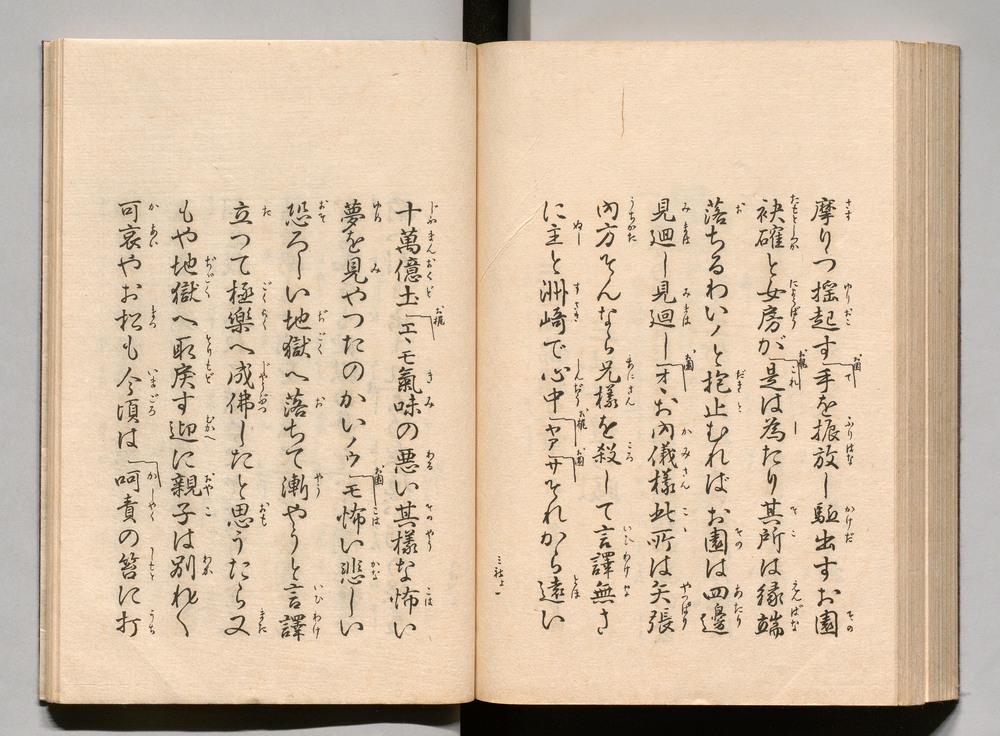 摩りつ揺起す「手を振放し駈出すお園
袂確と女房が「是は為たり其所は縁端
落ちるわいノと抱止むれば お園は四邊
見廻し見廻し「オヽお内儀様此所は矢張
内方そんなら兄様を殺して言譯無さ
に主と洲崎で心中「ヤア「サそれから遠い
三社上一
十萬億土「エヽモ氣味の悪い其様な怖い
夢を見やつたのかいノウ「モ怖い悲しい
恐ろしい地獄へ落ちて漸やうと言譯
立つて極樂へ成佛したと思うたら又
もや地獄へ取戻す迎に親子は別れ〱
可哀やお松も今頃は「呵責の笞に打